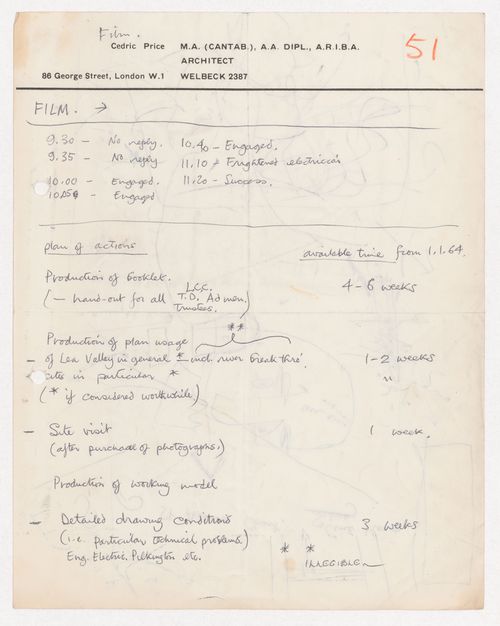 Film.
Cedric Price M.A. (CANTAB.), A.A. DIPL., A.R.I.B.A.
51
ARCHITECT
86 George Street, London W.1 WELBECK 2387
FILM. →
9.30 – No reply. 10.40 – Engaged.
9.35 – No reply 11.10 – Frightened electrician
10.00 – Engaged. 11.20 – Success.
10.05 – Engaged
plan of actions available time from 1.1.64.
Production of booklet. 4–6 weeks
L.C.C.
(– hand-out for all T.D. Admen.)
Trustees.
**
Production of plan usage
– of Lea Valley in general * – incl. river break thro'. 1–2 weeks
– sites in particular * "
(* if considered worthwhile)
– Site visit 1 week.
(after purchase of photographs.)
Production of working model
– Detailed drawing conditions 3 weeks
(i.e. particular technical problems.)
Eng. Electric. Pilkington etc. * *
ILLEGIBLE